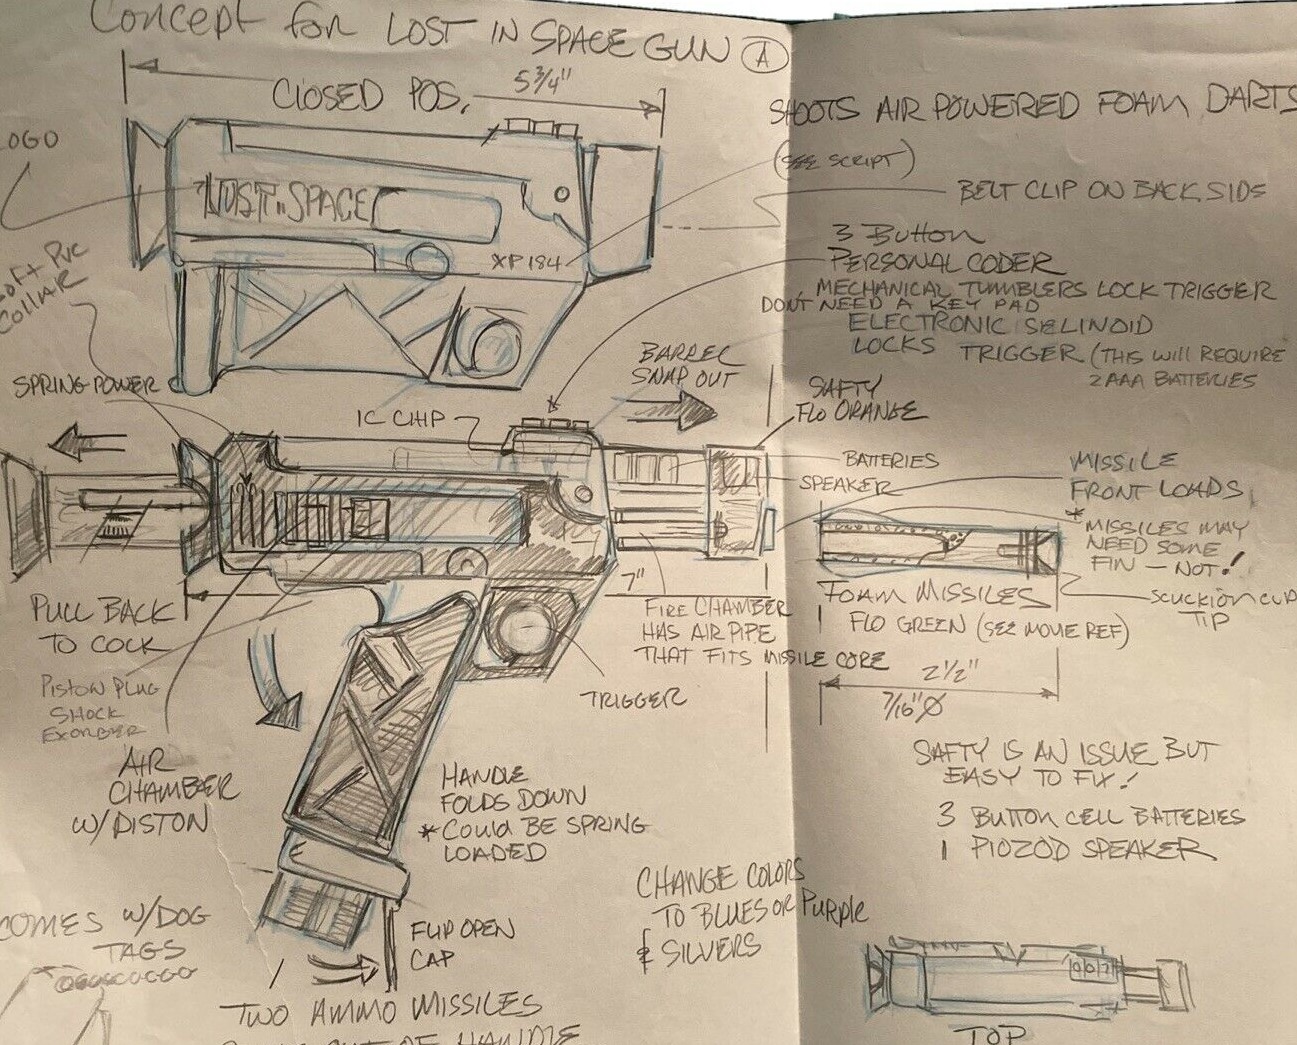 Concept for LOST IN SPACE GUN A
CLOSED POS. 5 3/4"
LOGO
LOST IN SPACE
XP184
SHOOTS AIR POWERED FOAM DARTS
(SEE SCRIPT)
BELT CLIP ON BACK SIDE
3 BUTTON
PERSONAL CODER
MECHANICAL TUMBLERS LOCK TRIGGER
DON'T NEED A KEY PAD
ELECTRONIC SELINOID
LOCKS TRIGGER (THIS WILL REQUIRE
2 AAA BATTERIES
Soft PVC
COLLAR
SPRING POWER
IC CHIP
BARREL
SNAP OUT
SAFTY
FLO ORANGE
BATTERIES
SPEAKER
MISSILE
FRONT LOADS
* MISSILES MAY
NEED SOME
FIN - NOT!
SCUCKION CUP
TIP
FOAM MISSILES
FLO GREEN (SEE MOVIE REF)
2 1/2"
7/16" Ø
PULL BACK
TO COCK
7"
FIRE CHAMBER
HAS AIR PIPE
THAT FITS MISSILE CORE
TRIGGER
PISTON PLUG
SHOCK
EXORBER
AIR
CHAMBER
W/ PISTON
HANDLE
FOLDS DOWN
* COULD BE SPRING
LOADED
SAFTY IS AN ISSUE BUT
EASY TO FIX!
3 BUTTON CELL BATTERIES
1 PIOZOD SPEAKER
CHANGE COLORS
TO BLUES OR PURPLE
& SILVERS
COMES W/ DOG
TAGS
FLIP OPEN
CAP
TWO AMMO MISSILES
OUT OF HANDLE
TOP